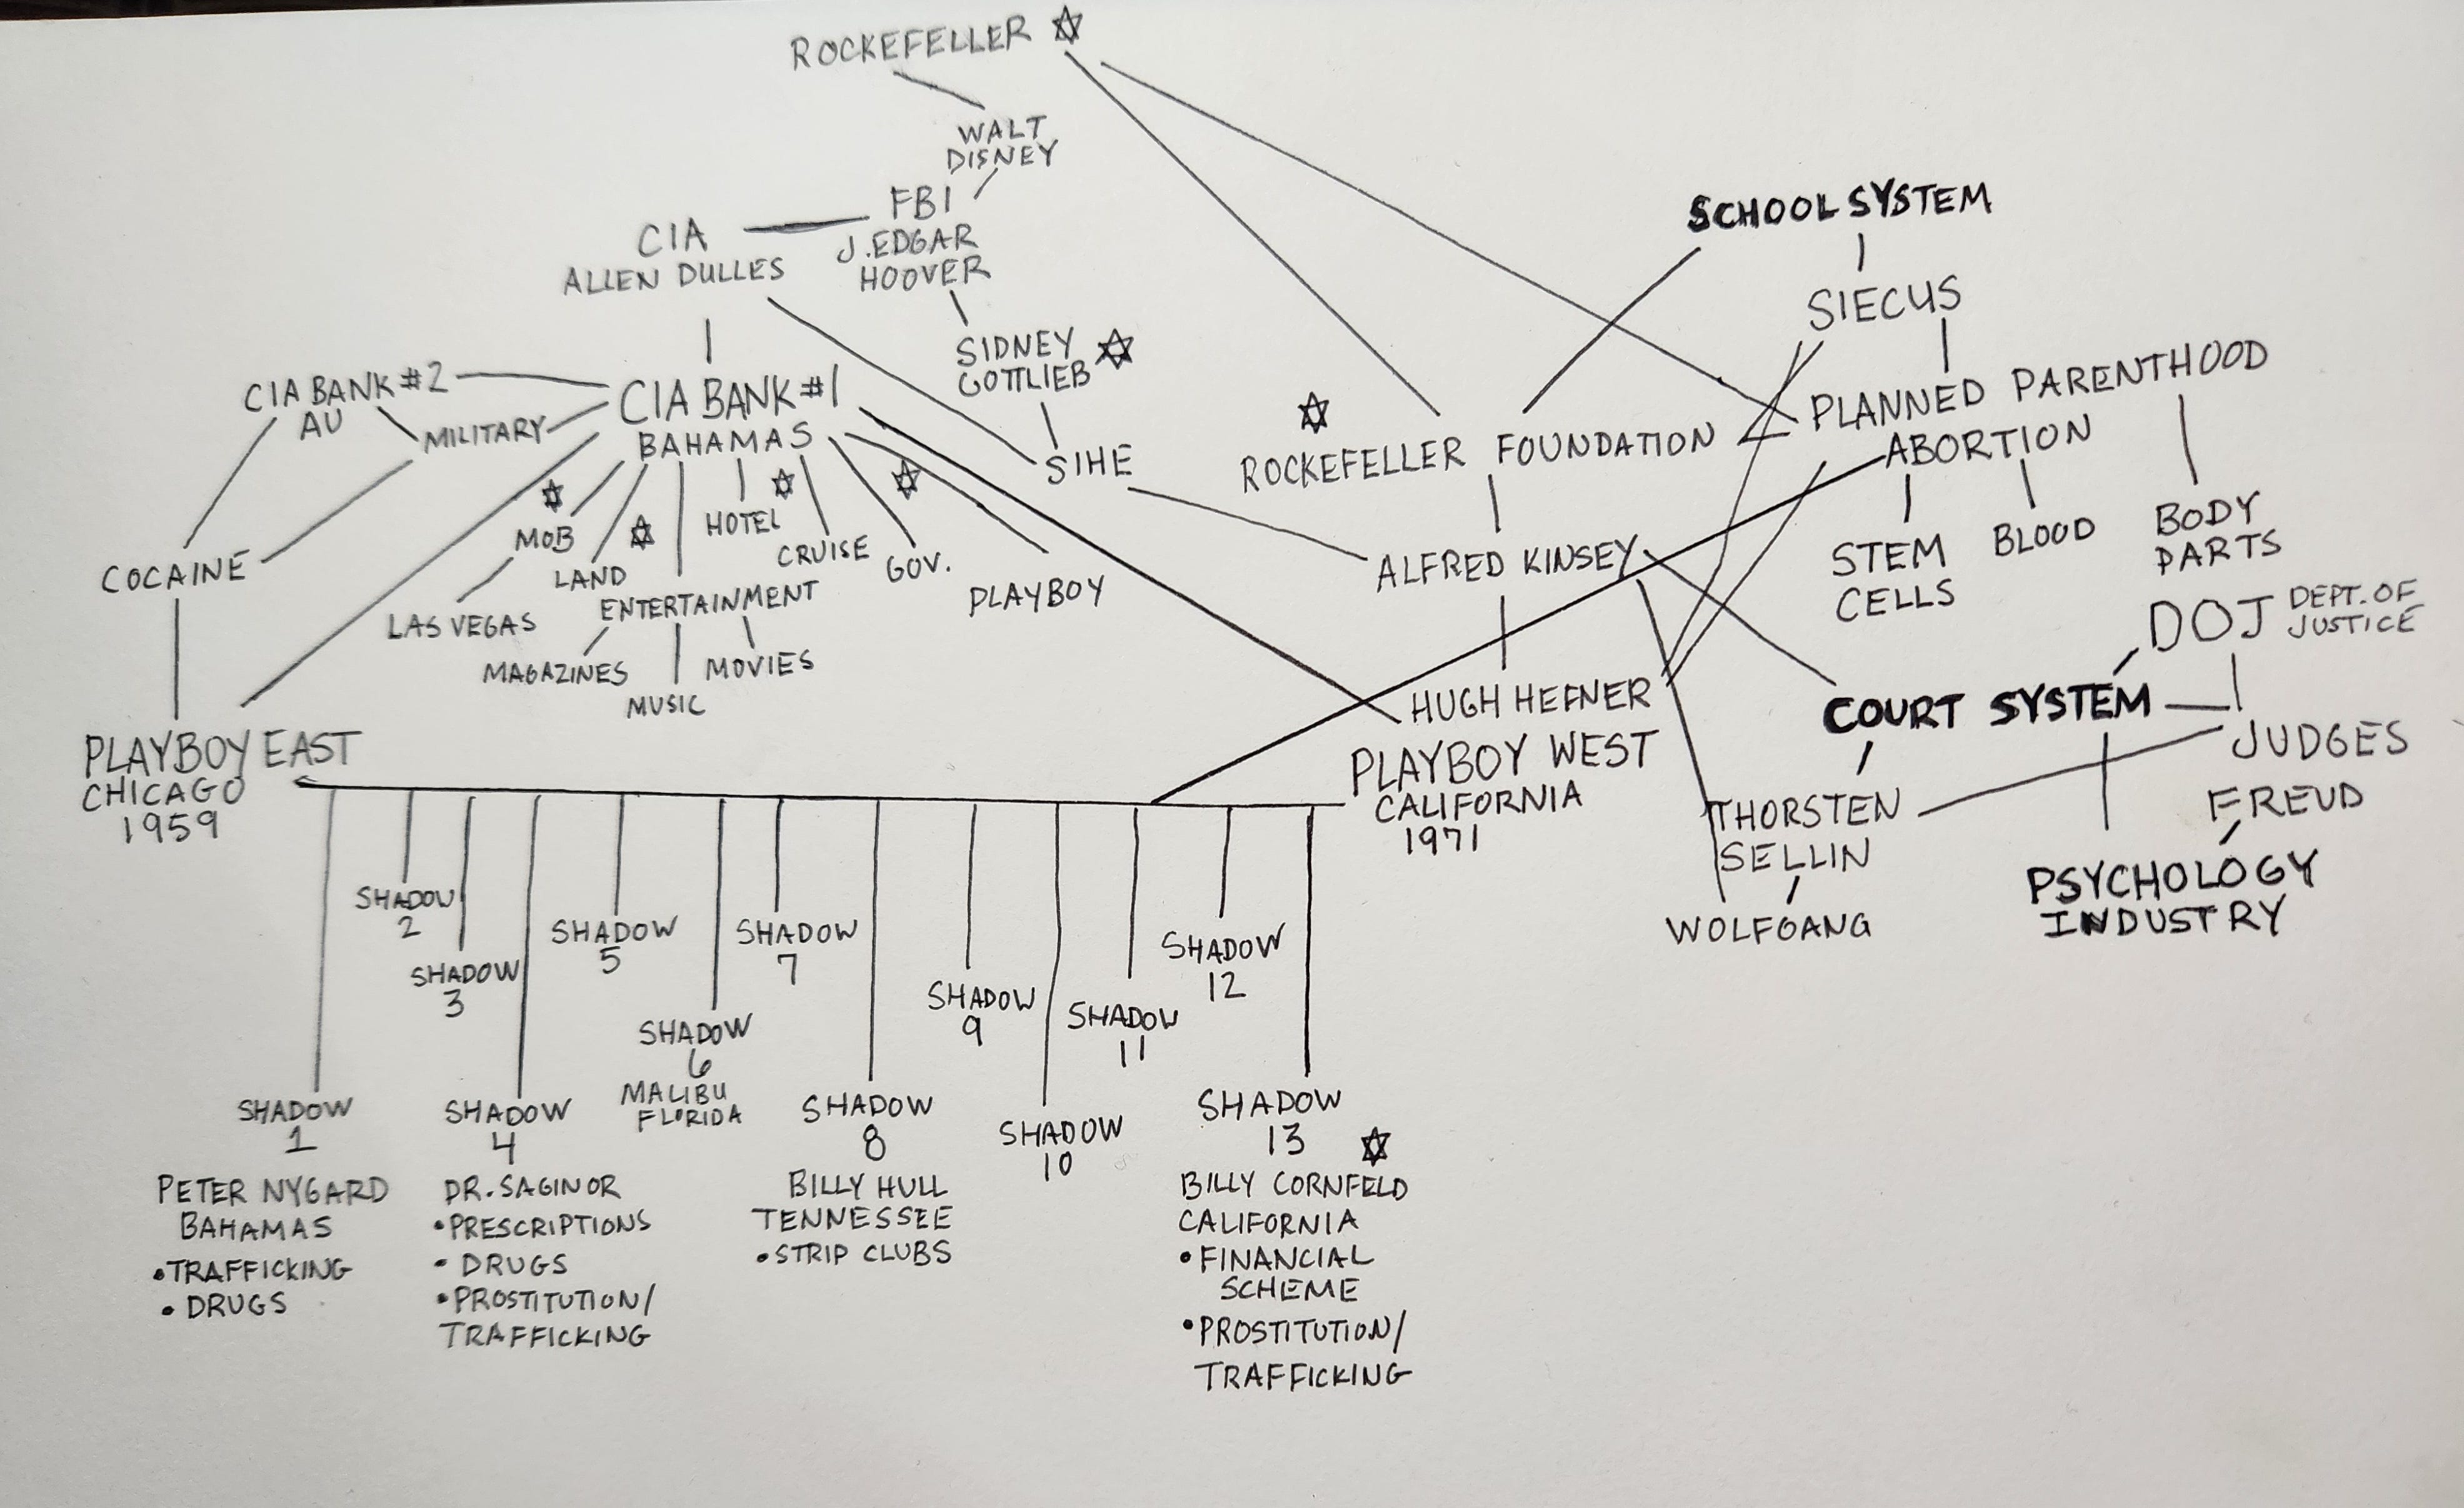 ROCKEFELLER
WALT
DISNEY
FBI
J. EDGAR
HOOVER
CIA
ALLEN DULLES
SIDNEY
GOTTLIEB
SIHE
CIA BANK #2
AU
MILITARY
CIA BANK #1
BAHAMAS
COCAINE
MOB
LAS VEGAS
LAND
HOTEL
CRUISE
GOV.
PLAYBOY
ENTERTAINMENT
MAGAZINES
MUSIC
MOVIES
SCHOOL SYSTEM
SIECUS
PLANNED PARENTHOOD
ABORTION
ROCKEFELLER FOUNDATION
STEM
CELLS
BLOOD
BODY
PARTS
ALFRED KINSEY
DOJ DEPT. OF
JUSTICE
HUGH HEFNER
PLAYBOY WEST
CALIFORNIA
1971
COURT SYSTEM
JUDGES
THORSTEN
SELLIN
WOLFGANG
FREUD
PSYCHOLOGY
INDUSTRY
PLAYBOY EAST
CHICAGO
1959
SHADOW
2
SHADOW
3
SHADOW
5
SHADOW
7
SHADOW
9
SHADOW
11
SHADOW
12
SHADOW
1
PETER NYGARD
BAHAMAS
•TRAFFICKING
•DRUGS
SHADOW
4
DR. SAGINOR
•PRESCRIPTIONS
•DRUGS
•PROSTITUTION/
TRAFFICKING
SHADOW
6
MALIBU
FLORIDA
SHADOW
8
BILLY HULL
TENNESSEE
•STRIP CLUBS
SHADOW
10
SHADOW
13
BILLY CORNFELD
CALIFORNIA
•FINANCIAL
SCHEME
•PROSTITUTION/
TRAFFICKING